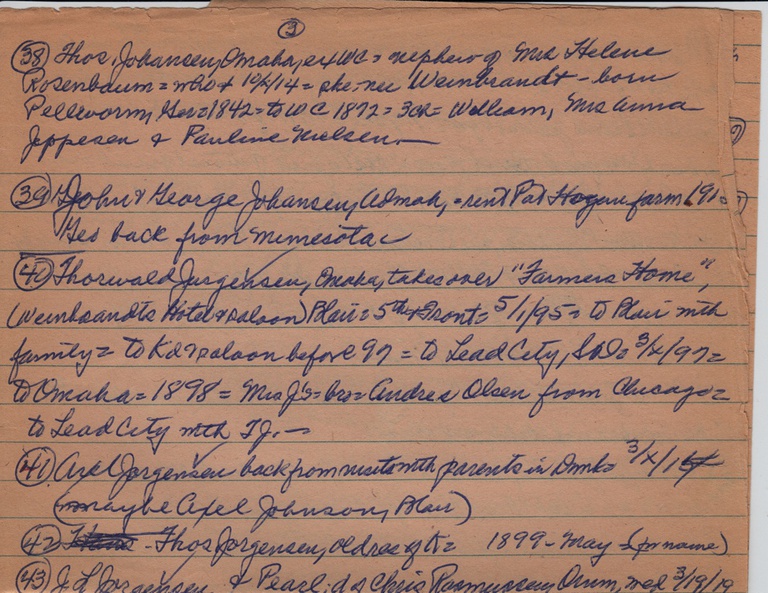 3
(38) Thos. Johansen, Omaha, ex WC = nephew of Mrs Helene
Rosenbaum = who + 10/x/14 = she: nee Weinbrandt - born
Pellworm, Ger = 1842 = to WC 1872 = 3ch = William, Mrs Anna
Jeppesen & Pauline Nielsen. —
(39) John & George Johansen, Admah, = rent Pat Hogan farm 191
Geo back from Minnesota
(40) Thorwald Jorgensen, Omaha, takes over "Farmers Home",
(Weinbrandts Hotel & saloon) Blair = 5th & Front = 5/1/95 = to Blair with
family = to Kd & saloon before 97 = to Lead City, S.D. = 3/x/97 =
to Omaha = 1898 = Mrs J's = bro = Andres Olsen from Chicago =
to Lead City with TJ. —
(41) Axel Jorgensen back from visit with parents in Dmk = 3/x/1
(maybe Axel Johnson, Blair)
(42) - Thos Jorgensen, old res of K = 1899 - May (pr name)
(43) J L Jorgensen, & Pearl: d of Chris Rasmussen, Orum, wed 3/19/19